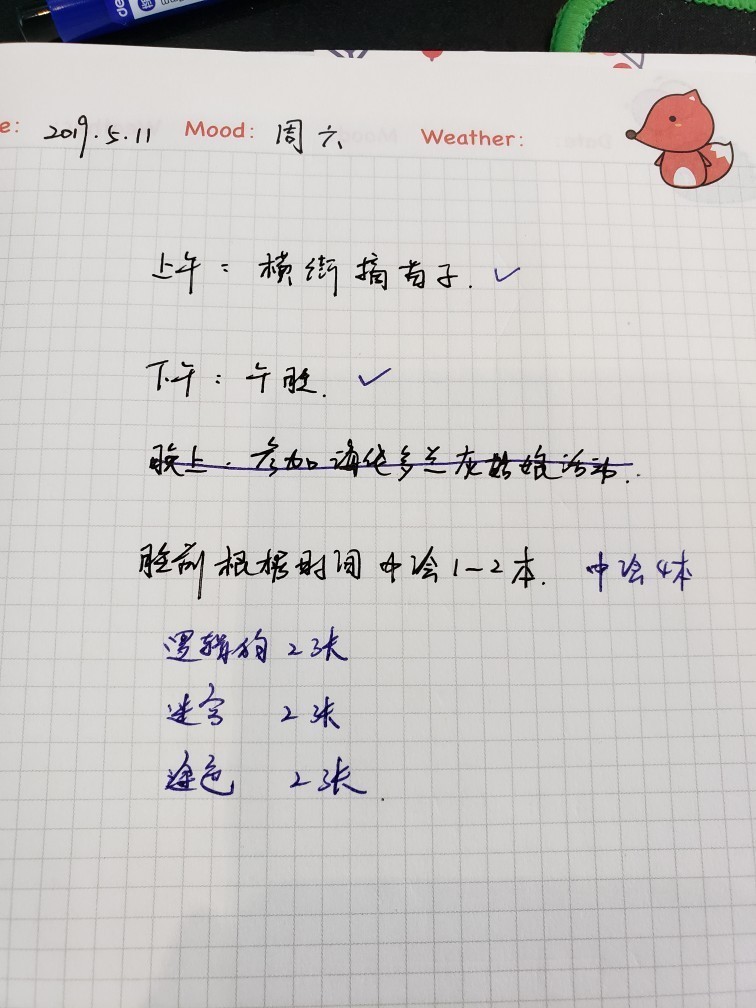 e: 2019.5.11 Mood: 周六 Weather:
上午: 横街摘 子. ✓
下午: 午睡. ✓
晚上. 参加 多 灰姑娘活动.
睡前根据时间中绘1-2本. 中绘4本
逻辑狗 2张
迷宫 2张
涂色 2张.